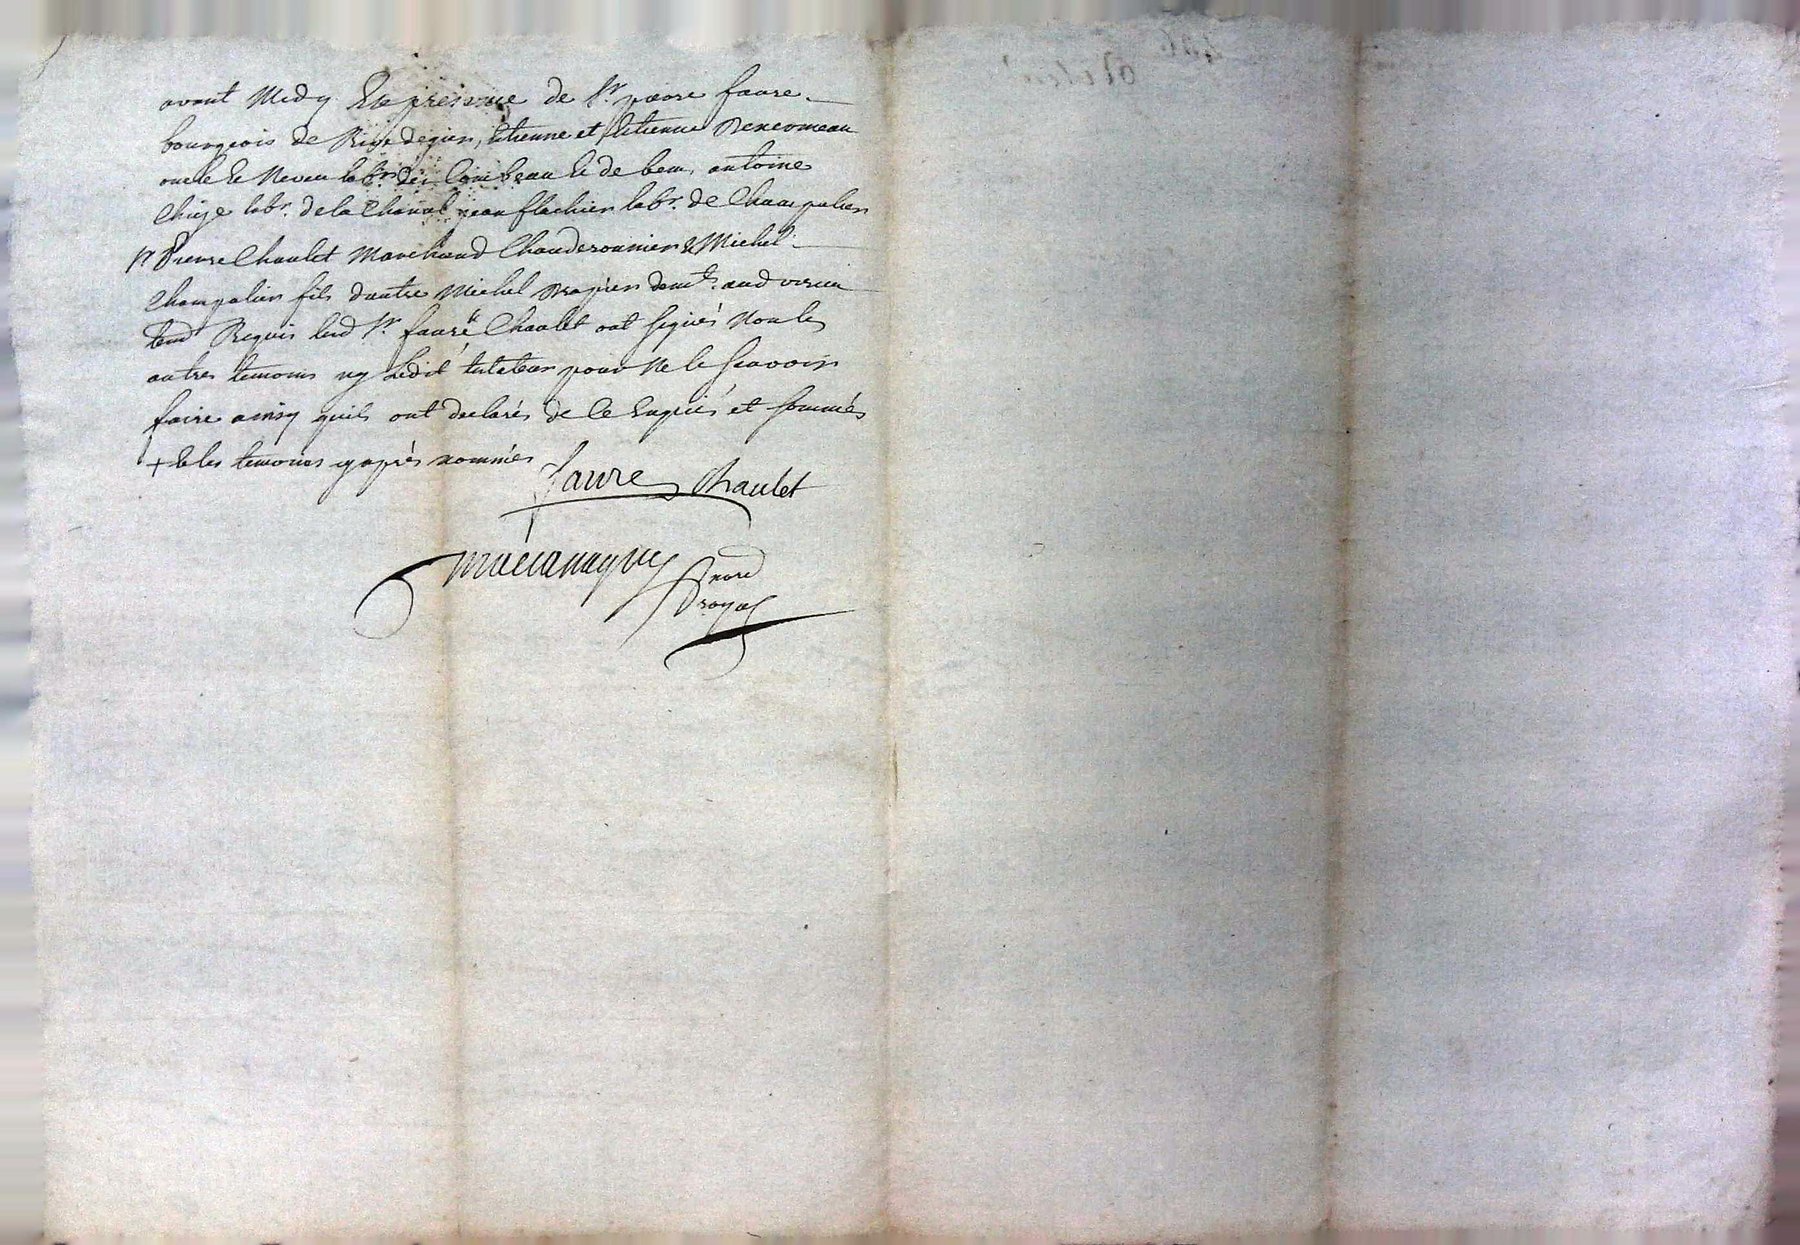 avant Midy En presence de Sr. pierre faure
bourgeois de Rive degier, Etienne et Etienne
oncle & Neveu labrs. de Combeau & de bem, antoine
Chize labr. de la Chanal jean flachier labr. de Champalier
Sr Pierre Chaulet Marchand Chauderonnier & Michel
Champalier fils d'autre Michel demts. aud virieu
Requis led Sr. faure & Chaulet ont signés Non les
autres temoins ny ledit tutateur pour Ne le scavoir
faire ainsy quils ont declarés de ce Enquis et sommés
+ & les temoins y après nommés
faure Chaulet
nore
royal